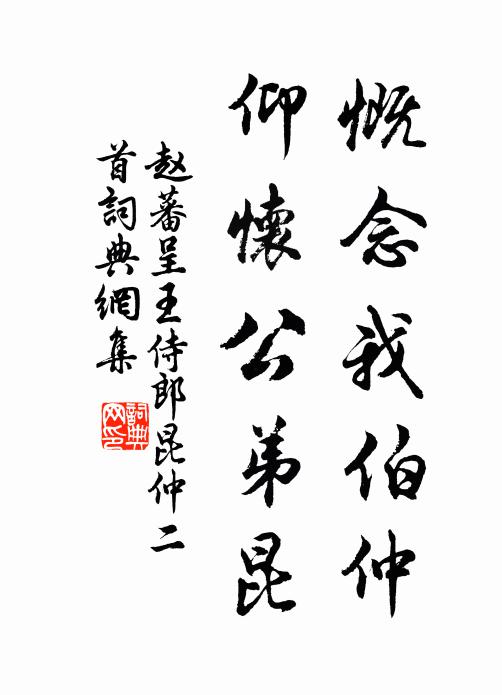 慨念我伯仲
仰懷公弟昆
赵蕃呈王侍郎昆仲二
首詞典網集
詞典
网印